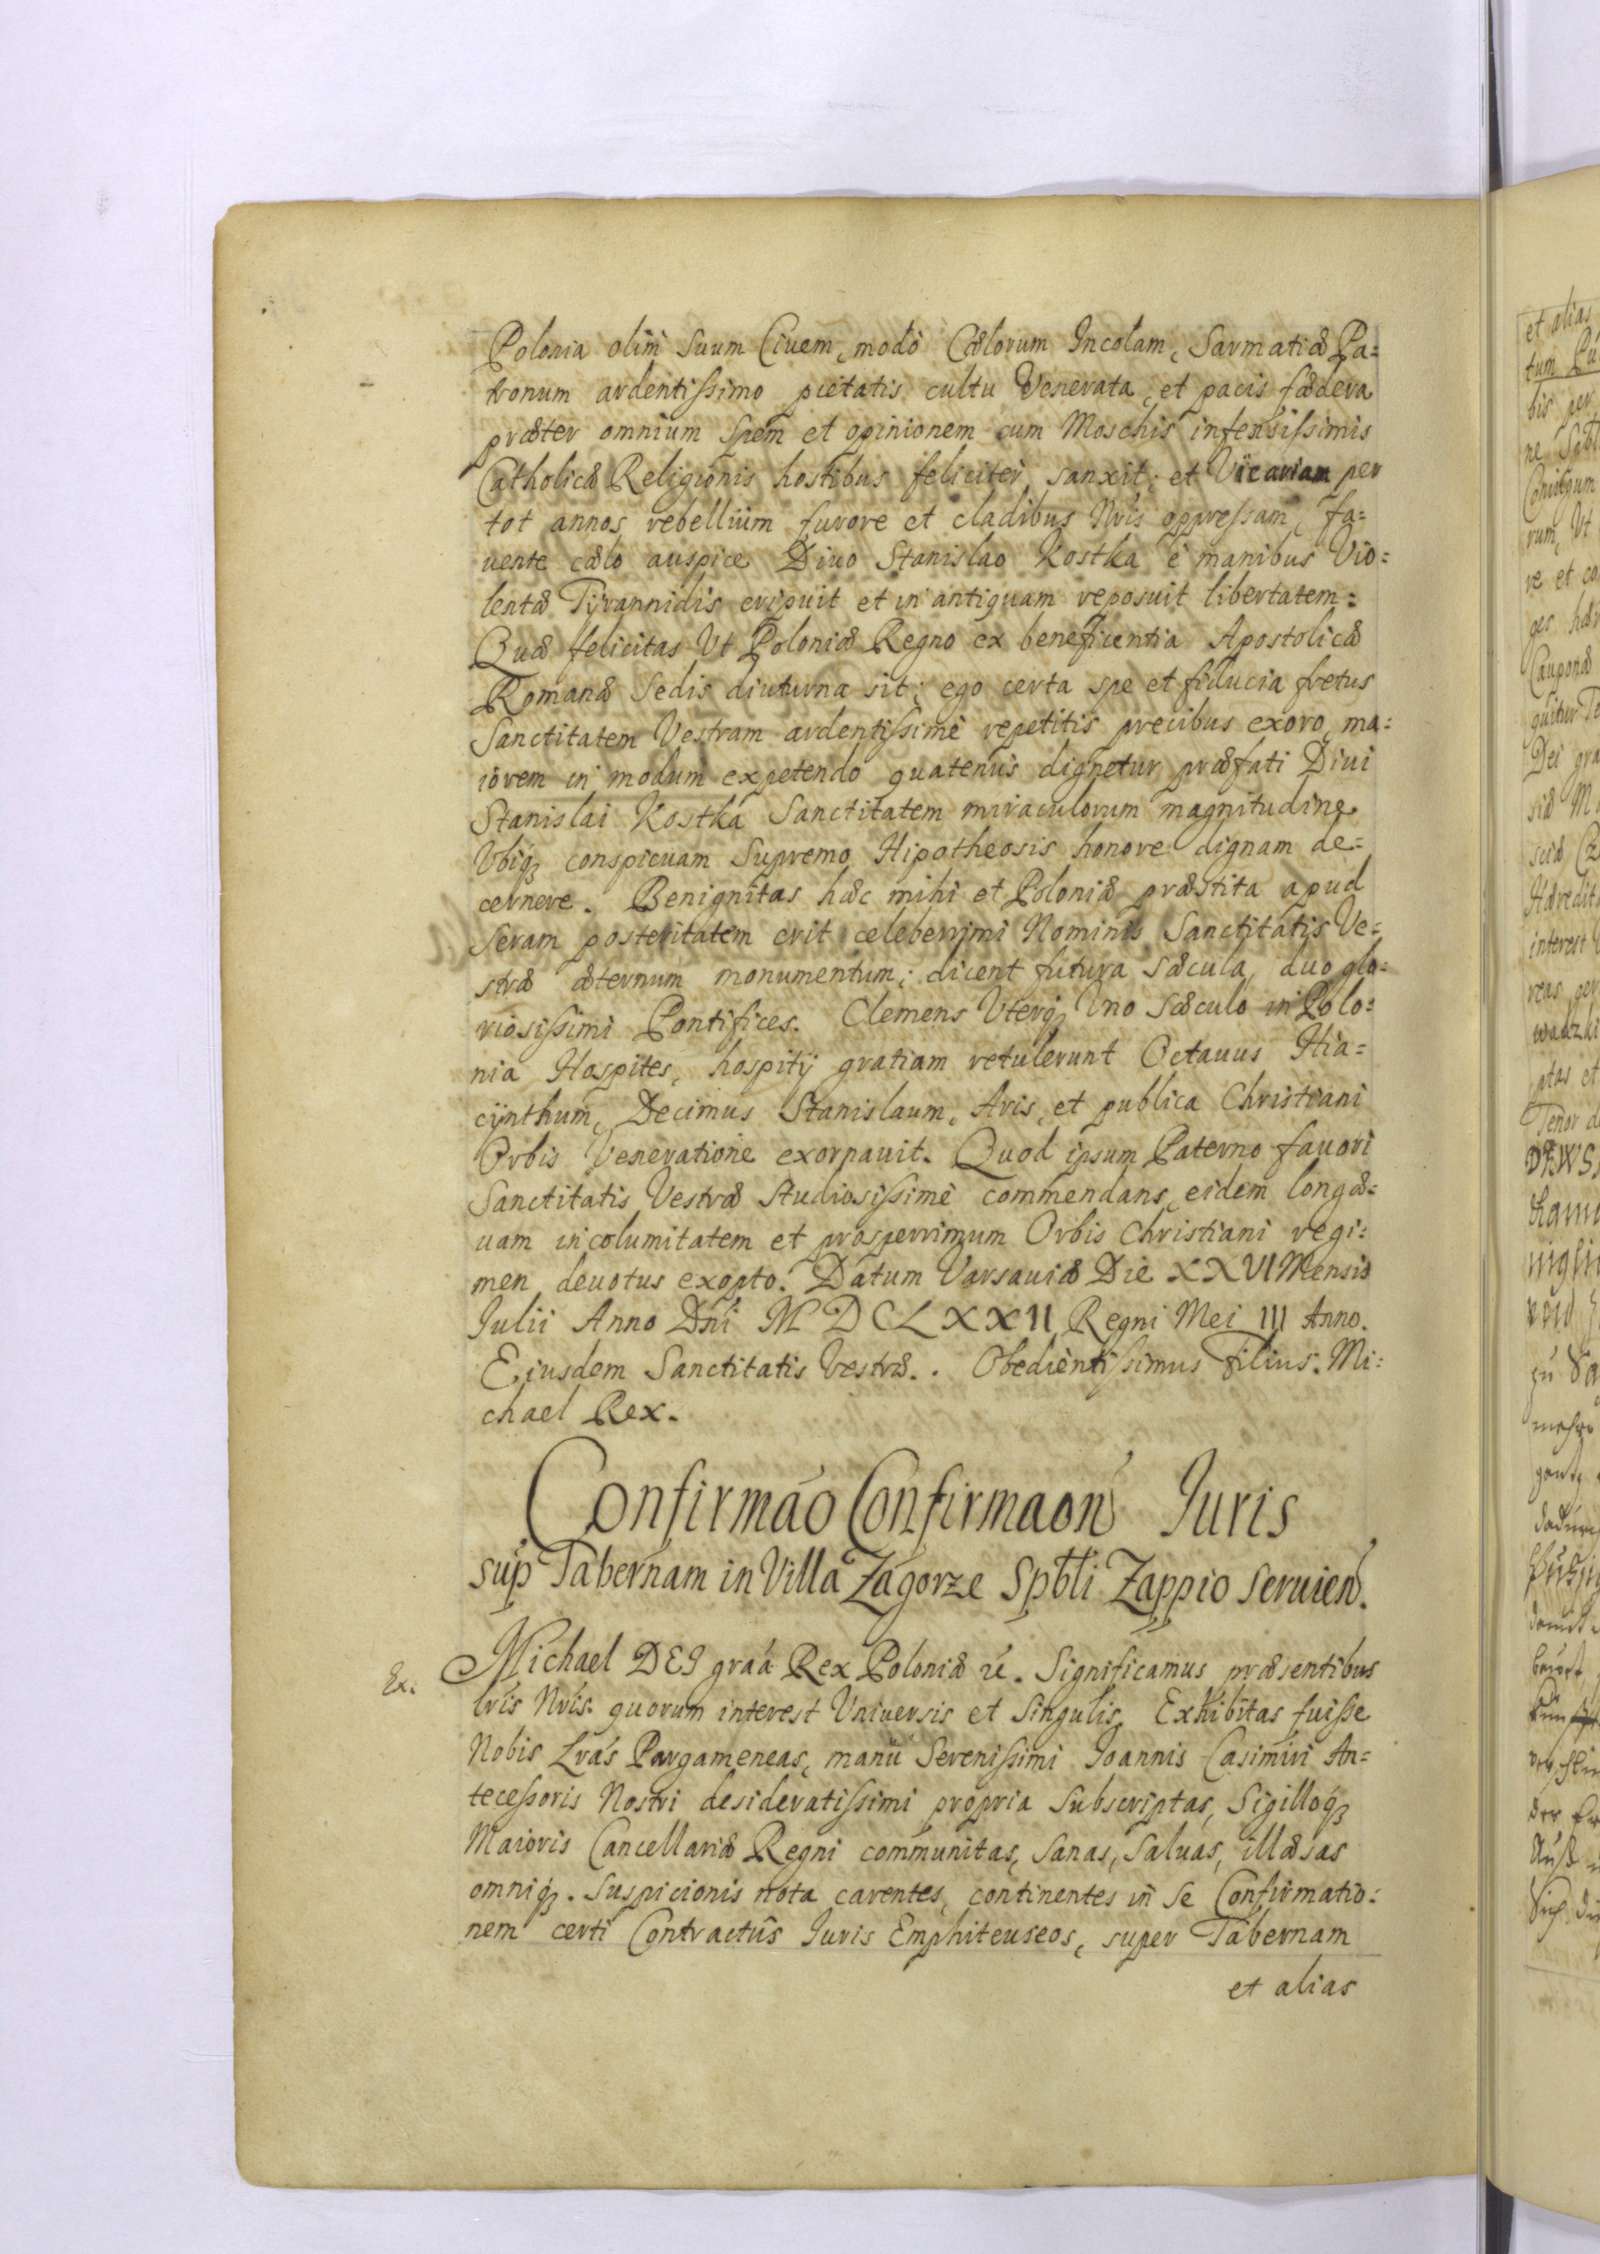 Polonia olim suum Ciuem, modò Cælorum Incolam, Sarmatiæ Pa=
tronum ardentissimo pietatis cultu Venerata, et pacis fædera
præter omnium spem et opinionem cum Moschis infensissimis
Catholicæ Religionis hostibus feliciter sanxit; et Vicariam per
tot annos rebellium furore et cladibus Nris oppressam, fa=
uente cælo auspice Diuo Stanislao Kostka è manibus Vio=
lentæ Tyrannidis eripuit et in antiquam reposuit libertatem:
Quæ felicitas Vt Poloniæ Regno ex beneficentia Apostolicæ
Romanæ Sedis diuturna sit; ego certa spe et fiducia fretus
Sanctitatem Vestram ardentissimè repetitis precibus exoro, ma=
iorem in modum expetendo quatenus dignetur præfati Diui
Stanislai Kostka Sanctitatem miraculorum magnitudine
Vbiq3 conspicuam Supremo Hipotheosis honore dignam de=
cernere. Benignitas hæc mihi et Poloniæ præstita apud
seram posteritatem erit celeberrimi Nominis Sanctitatis Ve=
stræ æternum monumentum; dicent futura sæcula, duo glo=
riosissimi Pontifices. Clemens Vterq3 Vno sæculo in Polo=
nia Hospites, hospitij gratiam retulerunt Octauus Hia=
cynthum, Decimus Stanislaum, Aris, et publica Christiani
Orbis Veneratione exornauit. Quod ipsum Paterno fauori
Sanctitatis Vestræ studiosissimè commendans, eidem longæ=
uam incolumitatem et prosperrimum Orbis Christiani regi=
men deuotus exopto. Datum Varsauiæ Die XXVI Mensis
Julii Anno Dni M D C L X X II Regni Mei III Anno.
Eiusdem Sanctitatis Vestræ.. Obedientissimus Filius. Mi=
chael Rex.
Confirmao Confirmaon Juris
sup Tabernam in Villa Zagorze Spbli Zappio seruien.
Ex. Michael DEI graa Rex Poloniæ &c. Significamus præsentibus
lris Nris. quorum interest Vniuersis et Singulis, Exhibitas fuisse
Nobis Lras Pargameneas, manu Serenissimi Joannis Casimiri An=
tecessoris Nostri desideratissimi propria Subscriptas, Sigilloq3
Maioris Cancellariæ Regni communitas, Sanas, Saluas, illæsas
omniq3. Suspicionis nota carentes, continentes in se Confirmatio=
nem certi Contractus Juris Emphiteuseos, super Tabernam
et alias